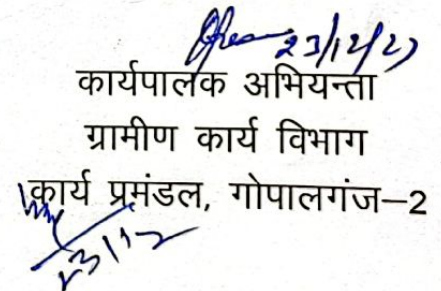 23/12/23
कार्यपालक अभियन्ता
ग्रामीण कार्य विभाग
कार्य प्रमंडल, गोपालगंज–2
23/12